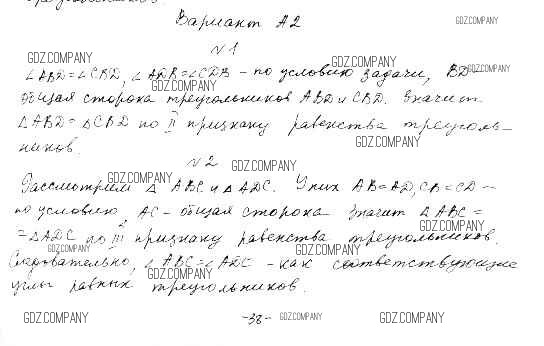 Вариант А2
GDZ.COMPANY
N1
GDZ.COMPANY
GDZ.COMPANY
∠ABD=∠CBD, ∠ADB=∠CDB - по условию задачи, BD-
GDZ.COMPANY
GDZ.COMPANY
общая сторона треугольников ABD и CBD. Значит
△ABD=△CBD по II признаку равенства треуголь-
GDZ.COMPANY
ников.
N2
GDZ.COMPANY
GDZ.COMPANY
Рассмотрим △ABC и △ADC. У них AB=AD, CB=CD -
по условию, AC - общая сторона. Значит △ABC=
GDZ.COMPANY
=△ADC по III признаку равенства треугольников.
GDZ.COMPANY
GDZ.COMPANY
Следовательно, ∠ABC=∠ADC - как соответствующие
GDZ.COMPANY
углы равных треугольников.
GDZ.COMPANY
-38-
GDZ.COMPANY
GDZ.COMPANY